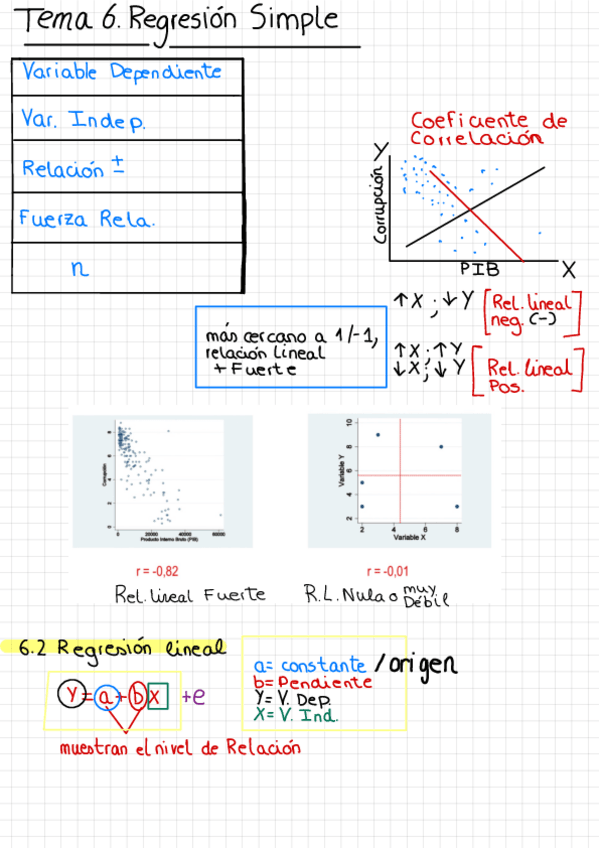 Tema 6. Regresión Simple
Variable Dependiente
Var. Indep.
Relación ±
Fuerza Rela.
n
Coeficiente de
Correlación
Y
Corrupción
PIB
X
↑X ; ↓Y [Rel. lineal
neg. (-)]
↑X ; ↑Y
↓X ; ↓Y [Rel. lineal
Pos.]
más cercano a 1/-1,
relación lineal
+ Fuerte
Corrupción
8
6
4
2
0
0 20000 40000 60000
Producto Interno Bruto (PIB)
Variable Y
10
8
6
4
2
2 4 6 8
Variable X
r = -0,82
r = -0,01
Rel. lineal Fuerte
R.L. Nula o muy
Débil
6.2 Regresión lineal
Y = a + b x + e
muestran el nivel de Relación
a = constante / origen
b = Pendiente
Y = V. Dep.
X = V. Ind.